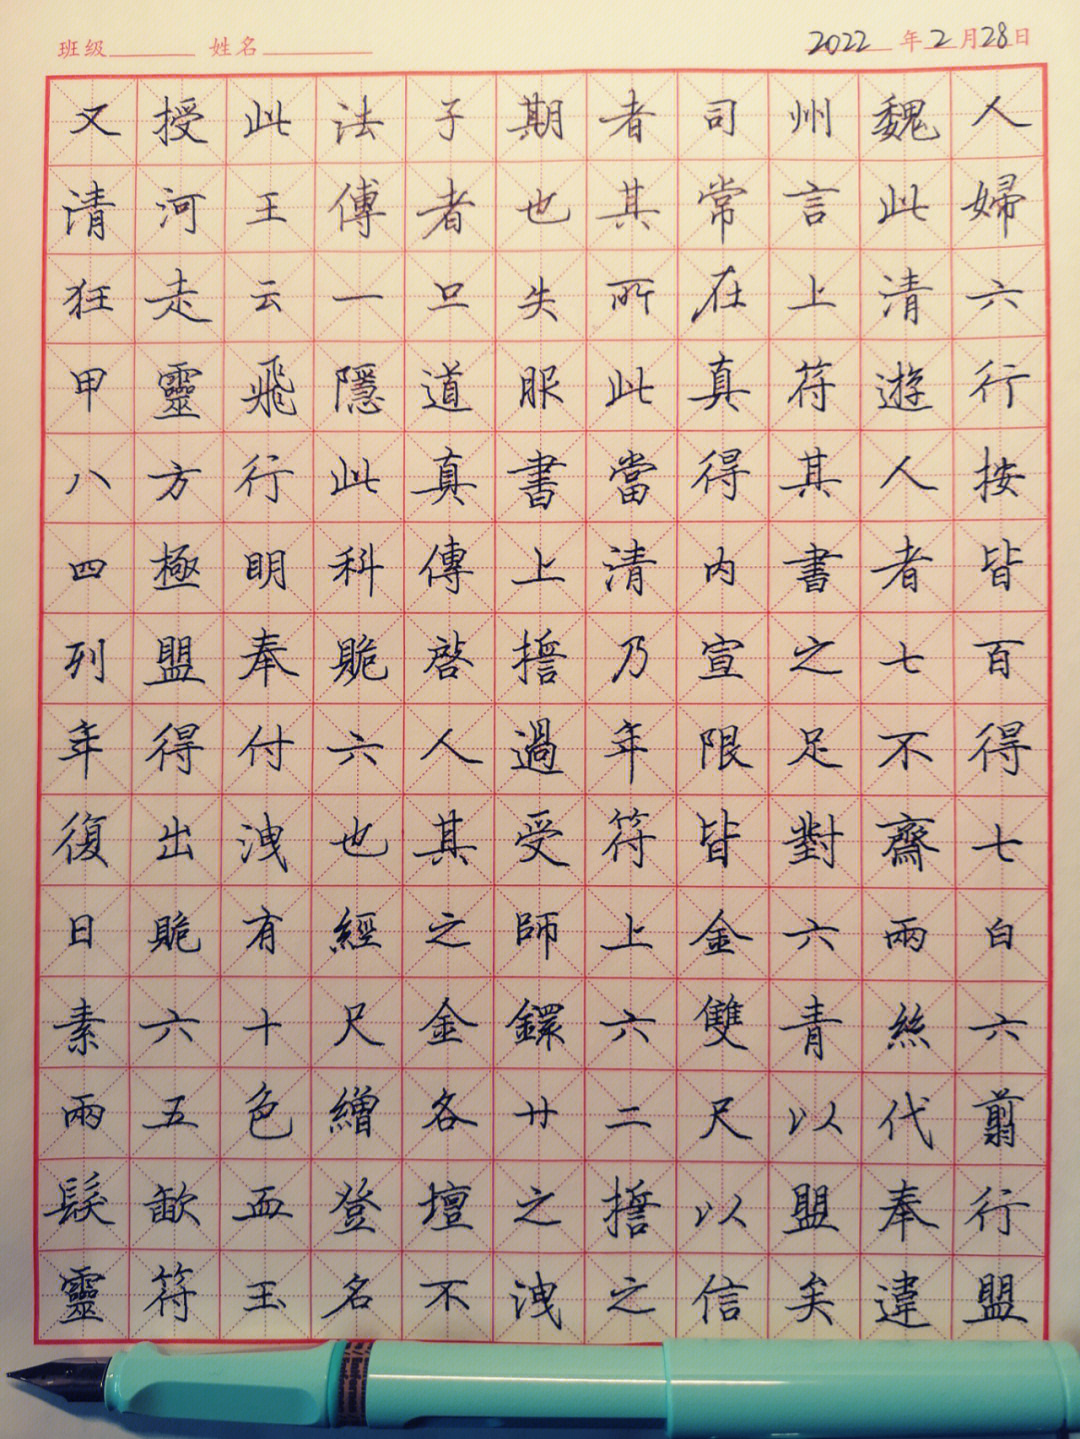 班级 姓名 2022年2月28日
又授此法子期者司州魏人
清河王傅者也其常言此婦
狂走云一旦失所在上清六
甲靈飛隱道服此真符遊行
八方行此真書當得其人按
四極明科傳上清內書者皆
列盟奉䞈啓誓乃宣之七百
年得付六人過年限足不得
復出洩也其受符皆對齋七
日䞈有經之師上金六兩白
素六十尺金鐶六雙青絲六
兩五色繒各廿二尺以代翦
髮歃血登壇之誓以盟奉行
靈符玉名不洩之信矣違盟